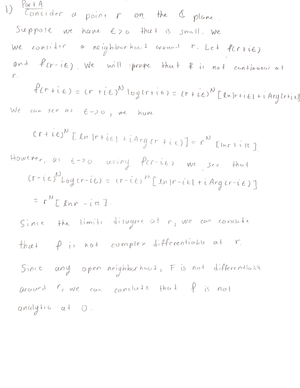 1) Part A
Consider a point r on the ℂ plane
Suppose we have ε>0 that is small. We
we consider a neighborhood around r. Let f(r+iε)
and f(r-iε). We will prove that f is not continuous at
r.
f(r+iε) = (r+iε)^N log(r+iε) = (r+iε)^N [ln|r+iε| + i Arg(r+iε)]
We can see as ε→0, we have
(r+iε)^N [ln|r+iε| + i Arg(r+iε)] = r^N [ln r + iπ]
However, as ε→0 using f(r-iε) we see that
(r-iε)^N Log(r-iε) = (r-iε)^N [ln|r-iε| + i Arg(r-iε)]
= r^N [ln r - iπ].
Since the limits disagree at r, we can conclude
that f is not complex differentiable at r.
Since any open neighborhood, f is not differentiable
around r, we can conclude that f is not
analytic at 0.